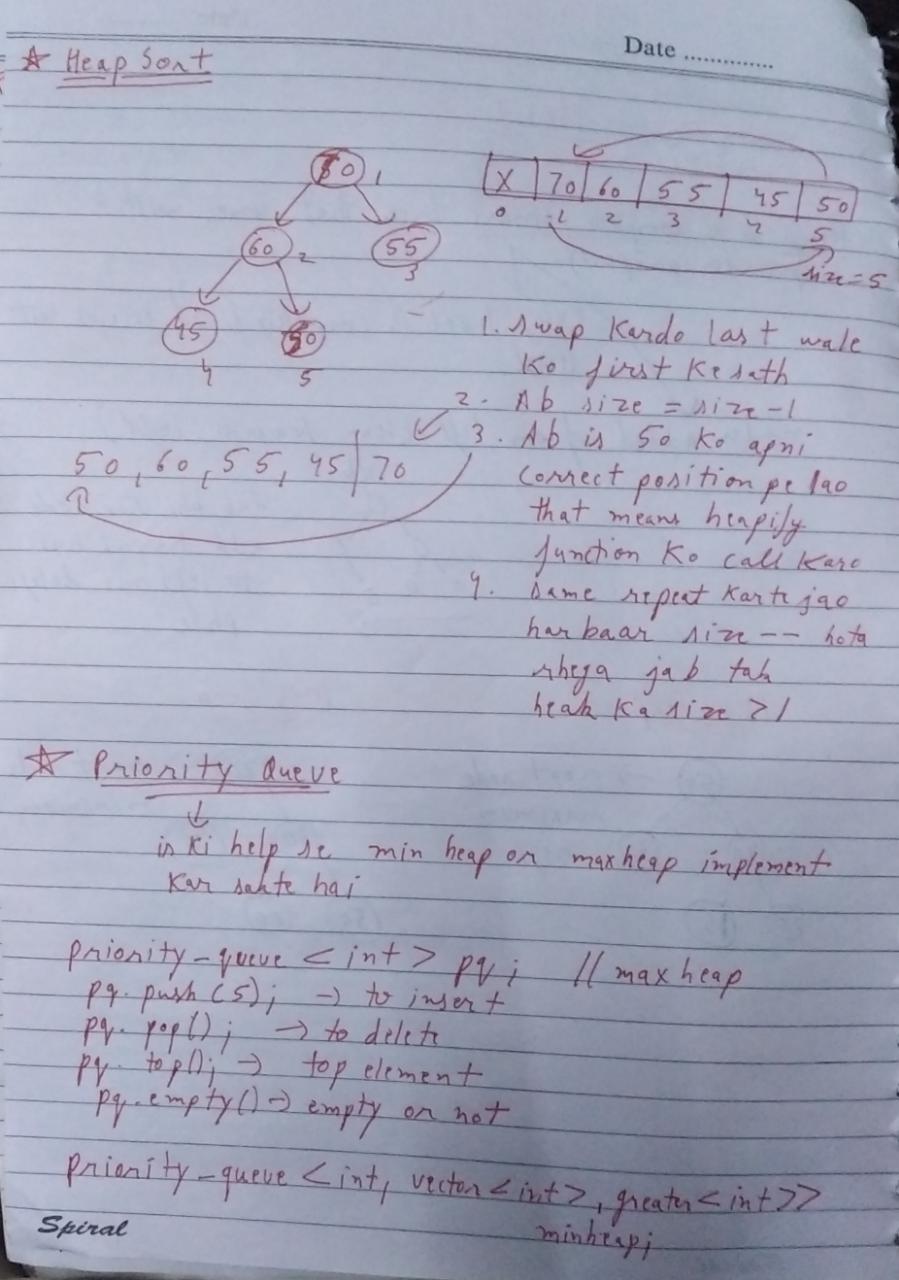 Date ..............
☆ Heap Sort
50 1
60 2
55 3
45 4
5
X 70 60 55 45 50
0 1 2 3 4 5
size = 5
1. Swap Kardo last wale
Ko first Ke sath
2. Ab size = size - 1
3. Ab is 50 Ko apni
correct position pe lao
that means heapify
function Ko call Karo
4. Same repeat Karte jao
har baar size -- hota
rhega jab tak
heak Ka size > 1
50, 60, 55, 45 | 70
☆ Priority Queue
↓
is Ki help se min heap or max heap implement
Kar sakte hai
priority-queue <int> pq; // max heap
pq. push (5); → to insert
pq. pop(); → to delete
pq. top(); → top element
pq. empty() → empty or not
priority-queue <int, vector<int>, greater<int>>
minheap;
Spiral